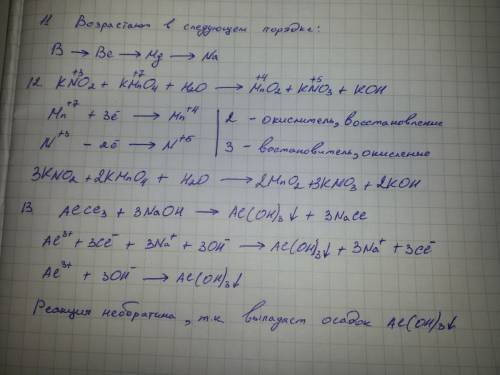 11 Возрастают в следующем порядке:
B → Be → Mg → Na
12. KN⁺³O₂ + KMn⁺⁷O₄ + H₂O → Mn⁺⁴O₂ + KN⁺⁵O₃ + KOH
Mn⁺⁷ + 3ē → Mn⁺⁴ | 2 - окислитель, восстановление
N⁺³ - 2ē → N⁺⁵ | 3 - востановитель, окисление
3KNO₂ + 2KMnO₄ + H₂O → 2MnO₂ + 3KNO₃ + 2KOH
13 AlCl₃ + 3NaOH → Al(OH)₃↓ + 3NaCl
Al³⁺ + 3Cl⁻ + 3Na⁺ + 3OH⁻ → Al(OH)₃↓ + 3Na⁺ + 3Cl⁻
Al³⁺ + 3OH⁻ → Al(OH)₃↓
Реакция необратима, т.к выпадаст осадок Al(OH)₃↓